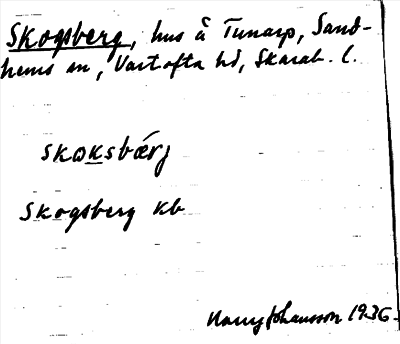 Skogsberg, hus å Tunarp, Sand-
hems sn, Vartofta hd, Skarab. l.
skωksbærj
Skogsberg kb
Harry Johansson 1936.